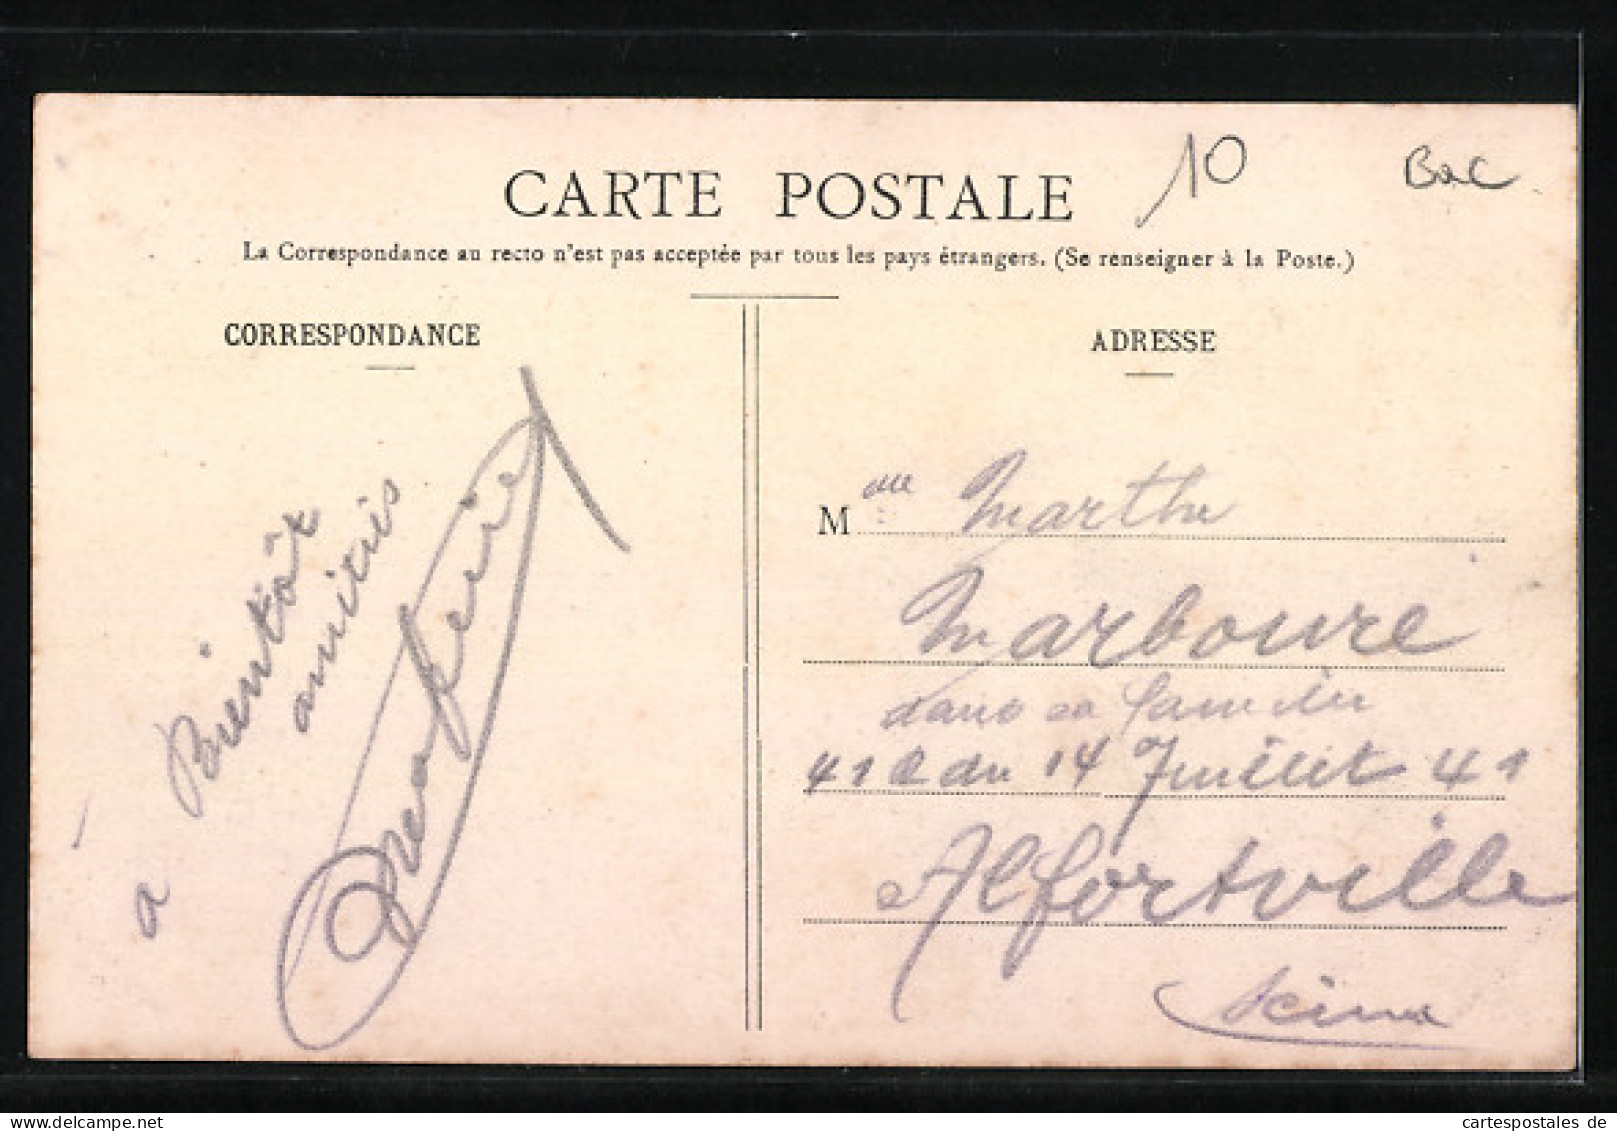 10
Bac
CARTE POSTALE
La Correspondance au recto n'est pas acceptée par tous les pays étrangers. (Se renseigner à la Poste.)
CORRESPONDANCE
a Bientôt
amitiés
ADRESSE
M elle Marthe
Marboure
dans sa famille
41 R du 14 Juillet 41
Alfortville
Seine
cartespostales de